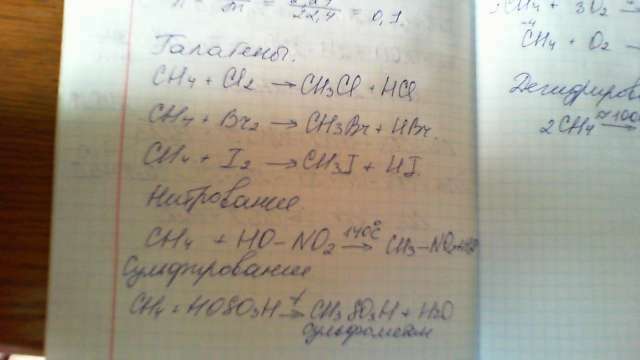 = 22,4 = 0,1.
Галагены.
CH4 + Cl2 → CH3Cl + HCl
CH4 + Br2 → CH3Br + HBr.
CH4 + I2 → CH3I + HI.
Нитрование
CH4 + HO-NO2 140°C → CH3-NO2+H2O
Сульфирование
CH4 + HOSO3H t → CH3SO3H + H2O
CH4 + 3O2
CH4 + O2
Дегидриров
2CH4 ≈100